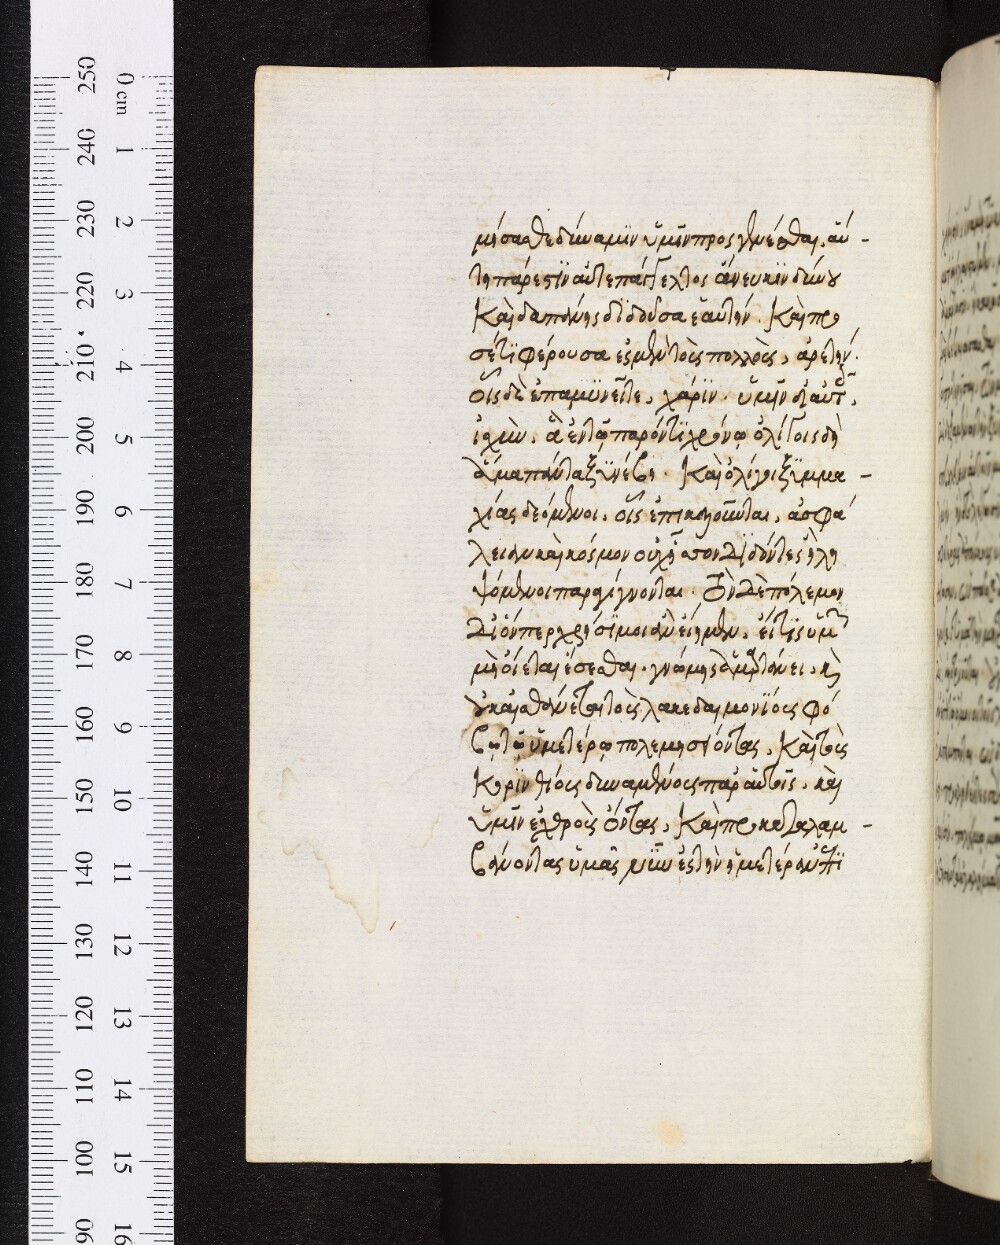 μήσασθε δύναμϊν ὑμῖν προσγενέσθαι, αὕ-
τη πάρεστϊν αὐτεπάγγελτος ἄνευ κϊνδύνου
Καὶ δαπάνης δϊδοῦσα ἑαυτήν. Καὶ προ
σέτϊ φέρουσα ἐς μὲν τοὺς πολλοὺς, ἀρετήν.
οἷς δὲ ἐπαμϋνεῖτε, χάρϊν. ὑμῖν δ' αὐτοῖς,
ἰσχὺν. ἃ ἐν τῷ παρόντϊ χρόνῳ ὀλίγοις δὴ
ἅμα πάντα ξϋνέβη. Καὶ ὀλίγοι ξϋμμα-
χίας δεόμενοι, οἷς ἐπικαλοῦνται, ἀσφά
λειαν καὶ κόσμον οὐχ ἧσσον διδόντες ἢ λη
ψόμενοι παραγίγνονται. τὸν δὲ πόλεμον
δι' ὅνπερ χρήσϊμοι ἂν εἴημεν, εἴ τϊς ὑμῶν
μὴ οἴεται ἔσεσθαι. γνώμης ἁμαρτάνει. καὶ
οὐκ αἰσθάνεται τοὺς λακεδαιμονΐους φό
βῳ τῷ ὑμετέρῳ πολεμησείοντας, Καὶ τοὺς
Κορϊνθίους δυναμένους παρ' αὐτοῖς, καὶ
ὑμῖν ἐχθροὺς ὄντας, Καὶ προκαταλαμ-
βάνοντας ὑμᾶς νῦν ἐς τὴν ἡμετέραν ἐπϊ